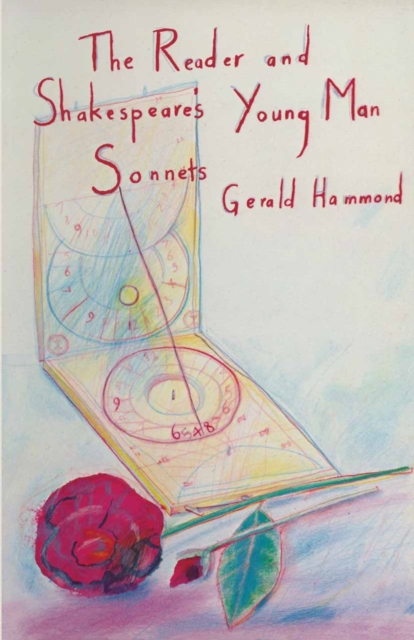 The Reader and
Shakespeare's Young Man
Sonnets
Gerald Hammond